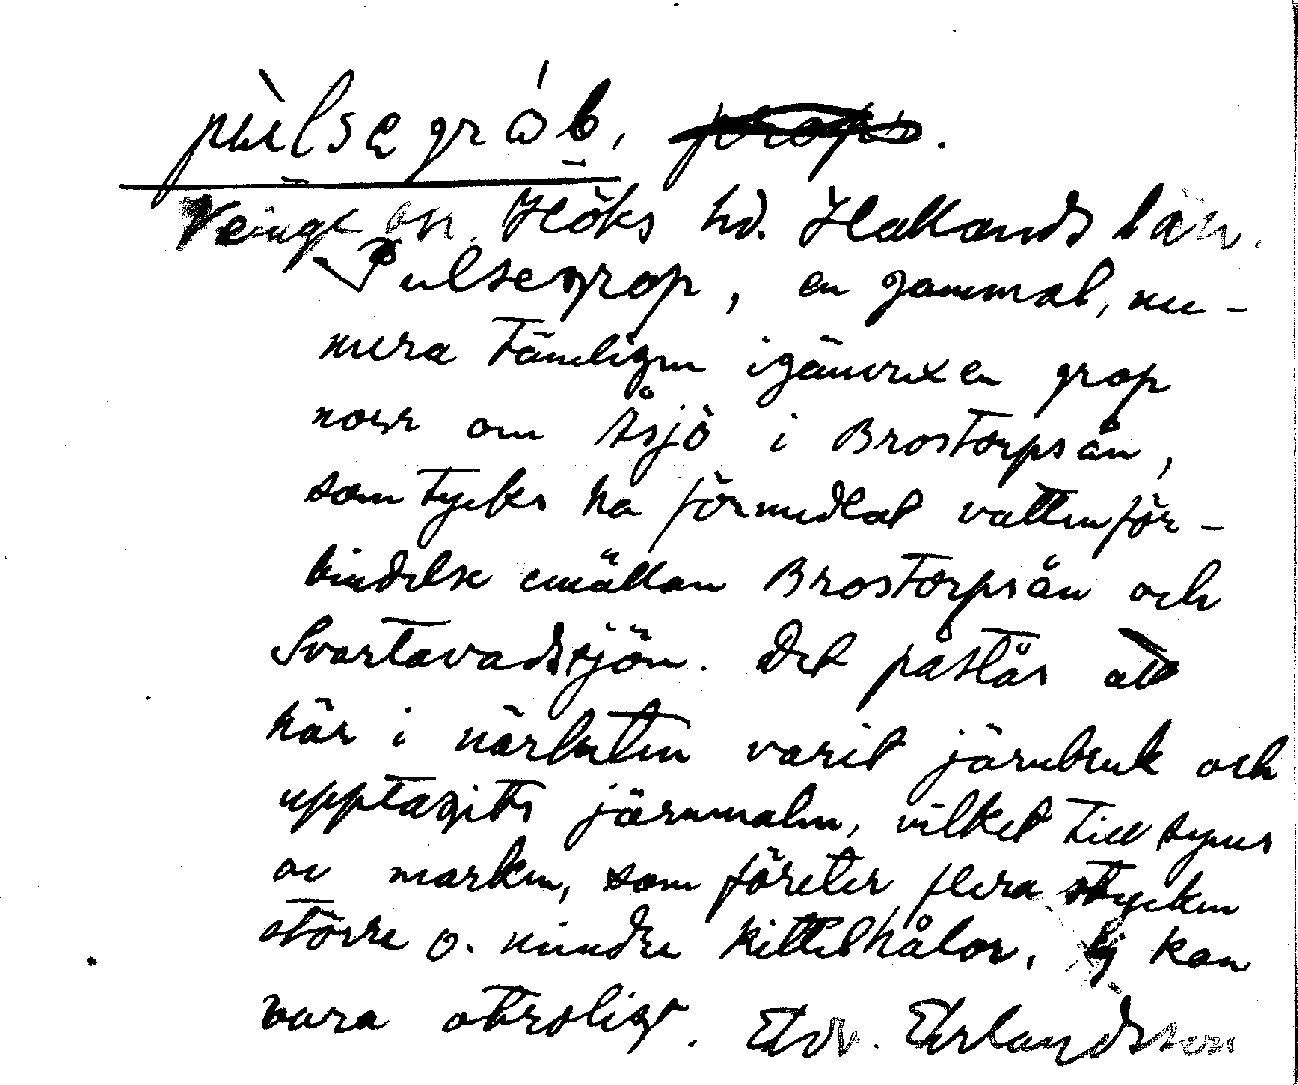 pùlsegrób, grops.
Veinge sn. Höks hd. Hallands län.
Pulsegrop, en gammal, nu-
mera tämligen igenvuxen grop
norr om Åsjö i Brostorpsån,
som tyckes ha förmedlat vattenför-
bindelse emällan Brostorpsån och
Svartavadsjön. Det påstås att
här i närheten varit järnbruk och
upptagits järnmalm, vilket till synes
av marken, som företer flera stycken
större o. mindre kittelhålor, ej kan
vara otroligt. Edv. Erlandsson